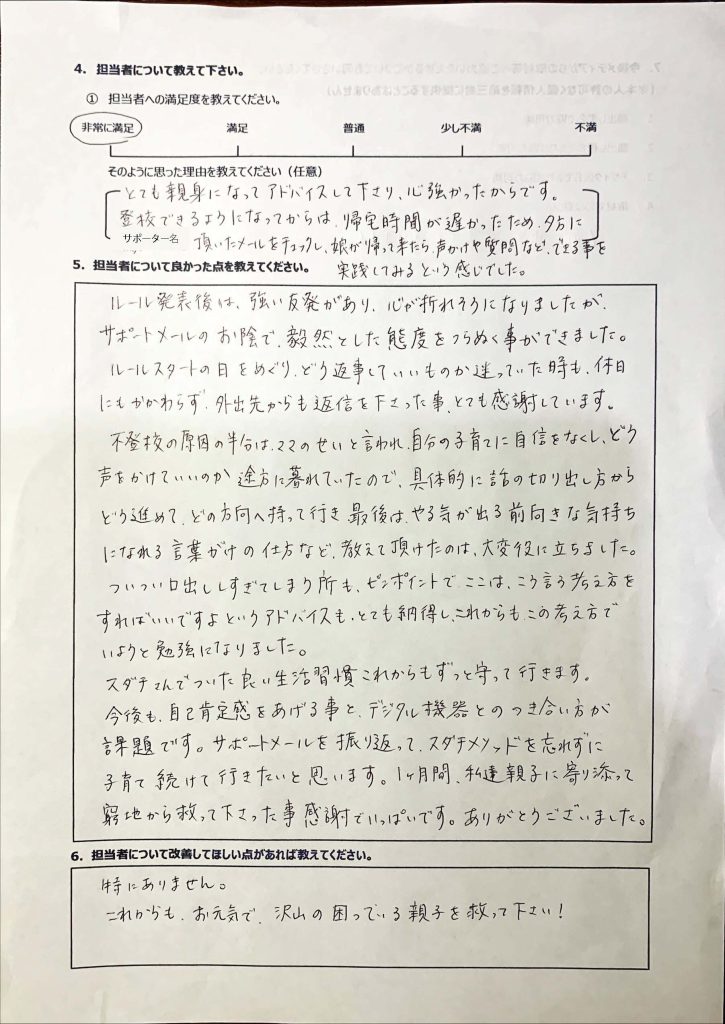 4．担当者について教えて下さい。
① 担当者への満足度を教えてください。
非常に満足 満足 普通 少し不満 不満
そのように思った理由を教えてください（任意）
とても親身になってアドバイスして下さり、心強かったからです。
登校できるようになってからは、帰宅時間が遅かったため、夕方に
サポーター名 頂いたメールをチェックし、娘が帰って来たら、声かけや質問など、できる事を
実践してみるという感じでした。
5．担当者について良かった点を教えてください。
ルール発表後は、強い反発があり、心が折れそうになりましたが、
サポートメールのお陰で、毅然とした態度をつらぬく事ができました。
ルールスタートの日をめぐり、どう返事していいものか迷っていた時も、休日
にもかかわらず、外出先からも返信を下さった事、とても感謝しています。
不登校の原因の半分は、ママのせいと言われ、自分の子育てに自信をなくし、どう
声をかけていいのか途方に暮れていたので、具体的に話の切り出し方から
どう進めて、どの方向へ持って行き最後は、やる気が出る前向きな気持ち
になれる言葉がけの仕方など、教えて頂けたのは、大変役に立ちました。
ついつい口出ししすぎてしまう所も、ピンポイントで、ここは、こう言う考え方を
すればいいですよというアドバイスも、とても納得し、これからも、この考え方で
いようと勉強になりました。
スダチさんでついた良い生活習慣これからもずっと守って行きます。
今後も、自己肯定感をあげる事と、デジタル機器とのつき合い方が
課題です。サポートメールを振り返って、スダチメソッドを忘れずに
子育て続けて行きたいと思います。1ヶ月間、私達親子に寄り添って
窮地から救って下さった事感謝でいっぱいです。ありがとうございました。
6．担当者について改善してほしい点があれば教えてください。
特にありません。
これからも、お元気で、沢山の困っている親子を救って下さい！